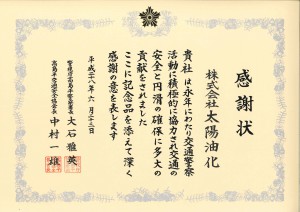 感謝状
株式会社太陽油化
貴社は永年にわたり交通警察
活動に積極的に協力され交通の
安全と円滑の確保に多大の
貢献をされました
ここに記念品を添えて深く
感謝の意を表します
平成二十八年六月二十三日
高島平警察署長 大石雅英
高島平交通安全協会長 中村一雄